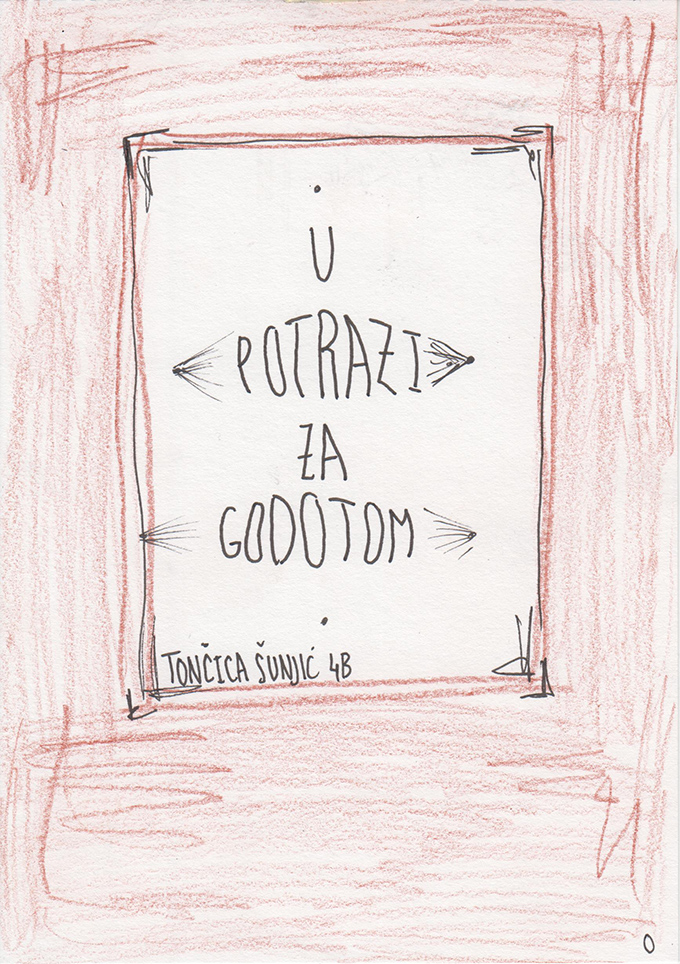 U
POTRAZI
ZA
GODOTOM
TONČICA ŠUNJIĆ 4B
0